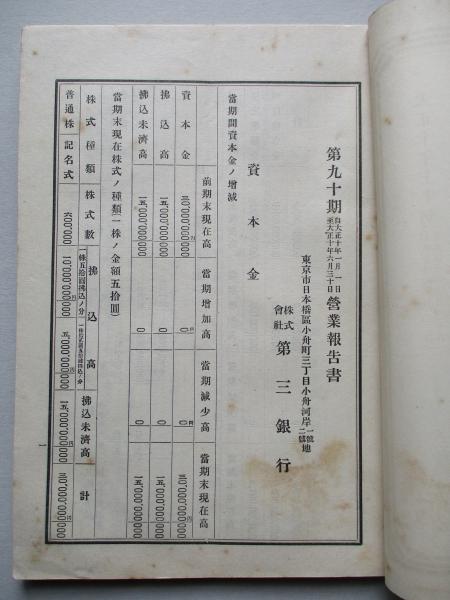 第九十期 自大正十年一月一日 至大正十年六月三十日 營業報告書
東京市日本橋區小舟町三丁目小舟河岸一號二號地
株式會社 第三銀行
資本金
當期間資本金ノ增減
前期末現在高 當期增加高 當期減少高 當期末現在高
資本金 三〇、〇〇〇、〇〇〇、〇〇〇円 〇円 〇円 三〇、〇〇〇、〇〇〇、〇〇〇円
拂込高 一五、〇〇〇、〇〇〇、〇〇〇 〇 〇 一五、〇〇〇、〇〇〇、〇〇〇
拂込未濟高 一五、〇〇〇、〇〇〇、〇〇〇 〇 〇 一五、〇〇〇、〇〇〇、〇〇〇
當期末現在株式ノ種類(一株ノ金額五拾圓)
株式種類 株式數 拂込高 拂込未濟高 計
一株五拾圓拂込ノ分
普通株 記名式 六〇〇、〇〇〇 一〇、〇〇〇、〇〇〇、〇〇〇円 五、〇〇〇、〇〇〇、〇〇〇円 一五、〇〇〇、〇〇〇、〇〇〇円 三〇、〇〇〇、〇〇〇、〇〇〇円
一